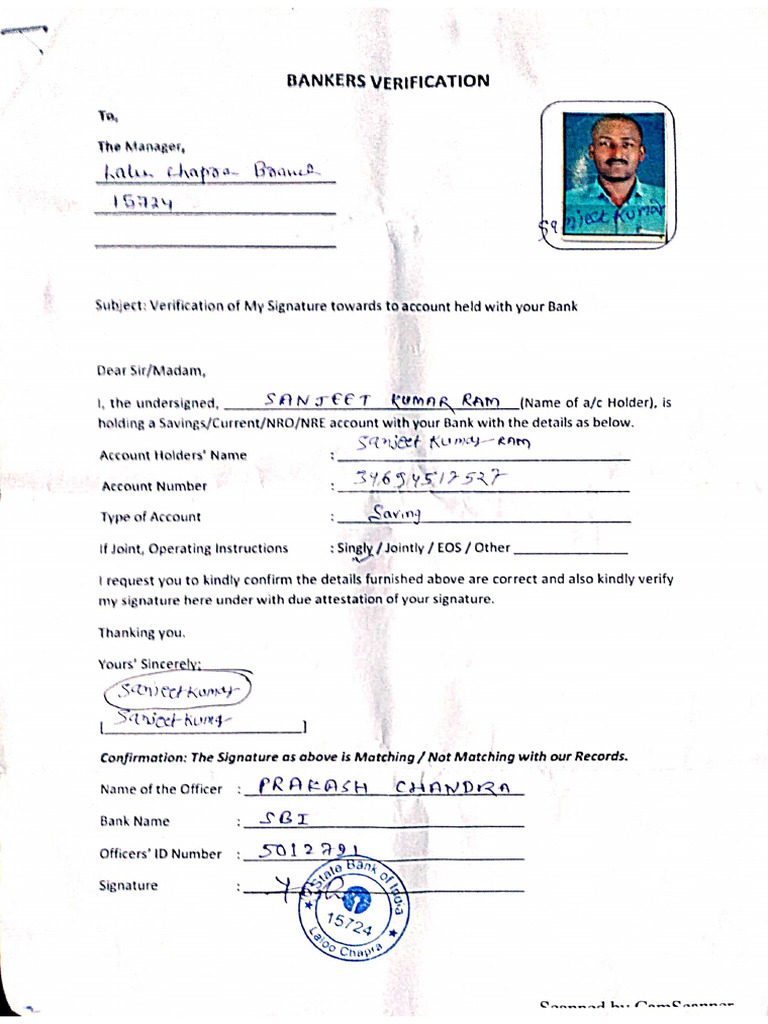 BANKERS VERIFICATION
To,
The Manager,
Lalu Chapra Branch
15724
Sanjeet Kumar
Subject: Verification of My Signature towards to account held with your Bank
Dear Sir/Madam,
I, the undersigned, SANJEET KUMAR RAM (Name of a/c Holder), is
holding a Savings/Current/NRO/NRE account with your Bank with the details as below.
Account Holders' Name : Sanjeet Kumar RAM
Account Number : 34694517527
Type of Account : Saving
If Joint, Operating Instructions : Singly / Jointly / EOS / Other
I request you to kindly confirm the details furnished above are correct and also kindly verify
my signature here under with due attestation of your signature.
Thanking you.
Yours' Sincerely;
Sanjeet Kumar
[Sanjeet Kumar]
Confirmation: The Signature as above is Matching / Not Matching with our Records.
Name of the Officer : PRAKASH CHANDRA
Bank Name : SBI
Officers' ID Number : 5012791
Signature :
State Bank of India
15724
Laloo Chapra
Scanned by CamScanner